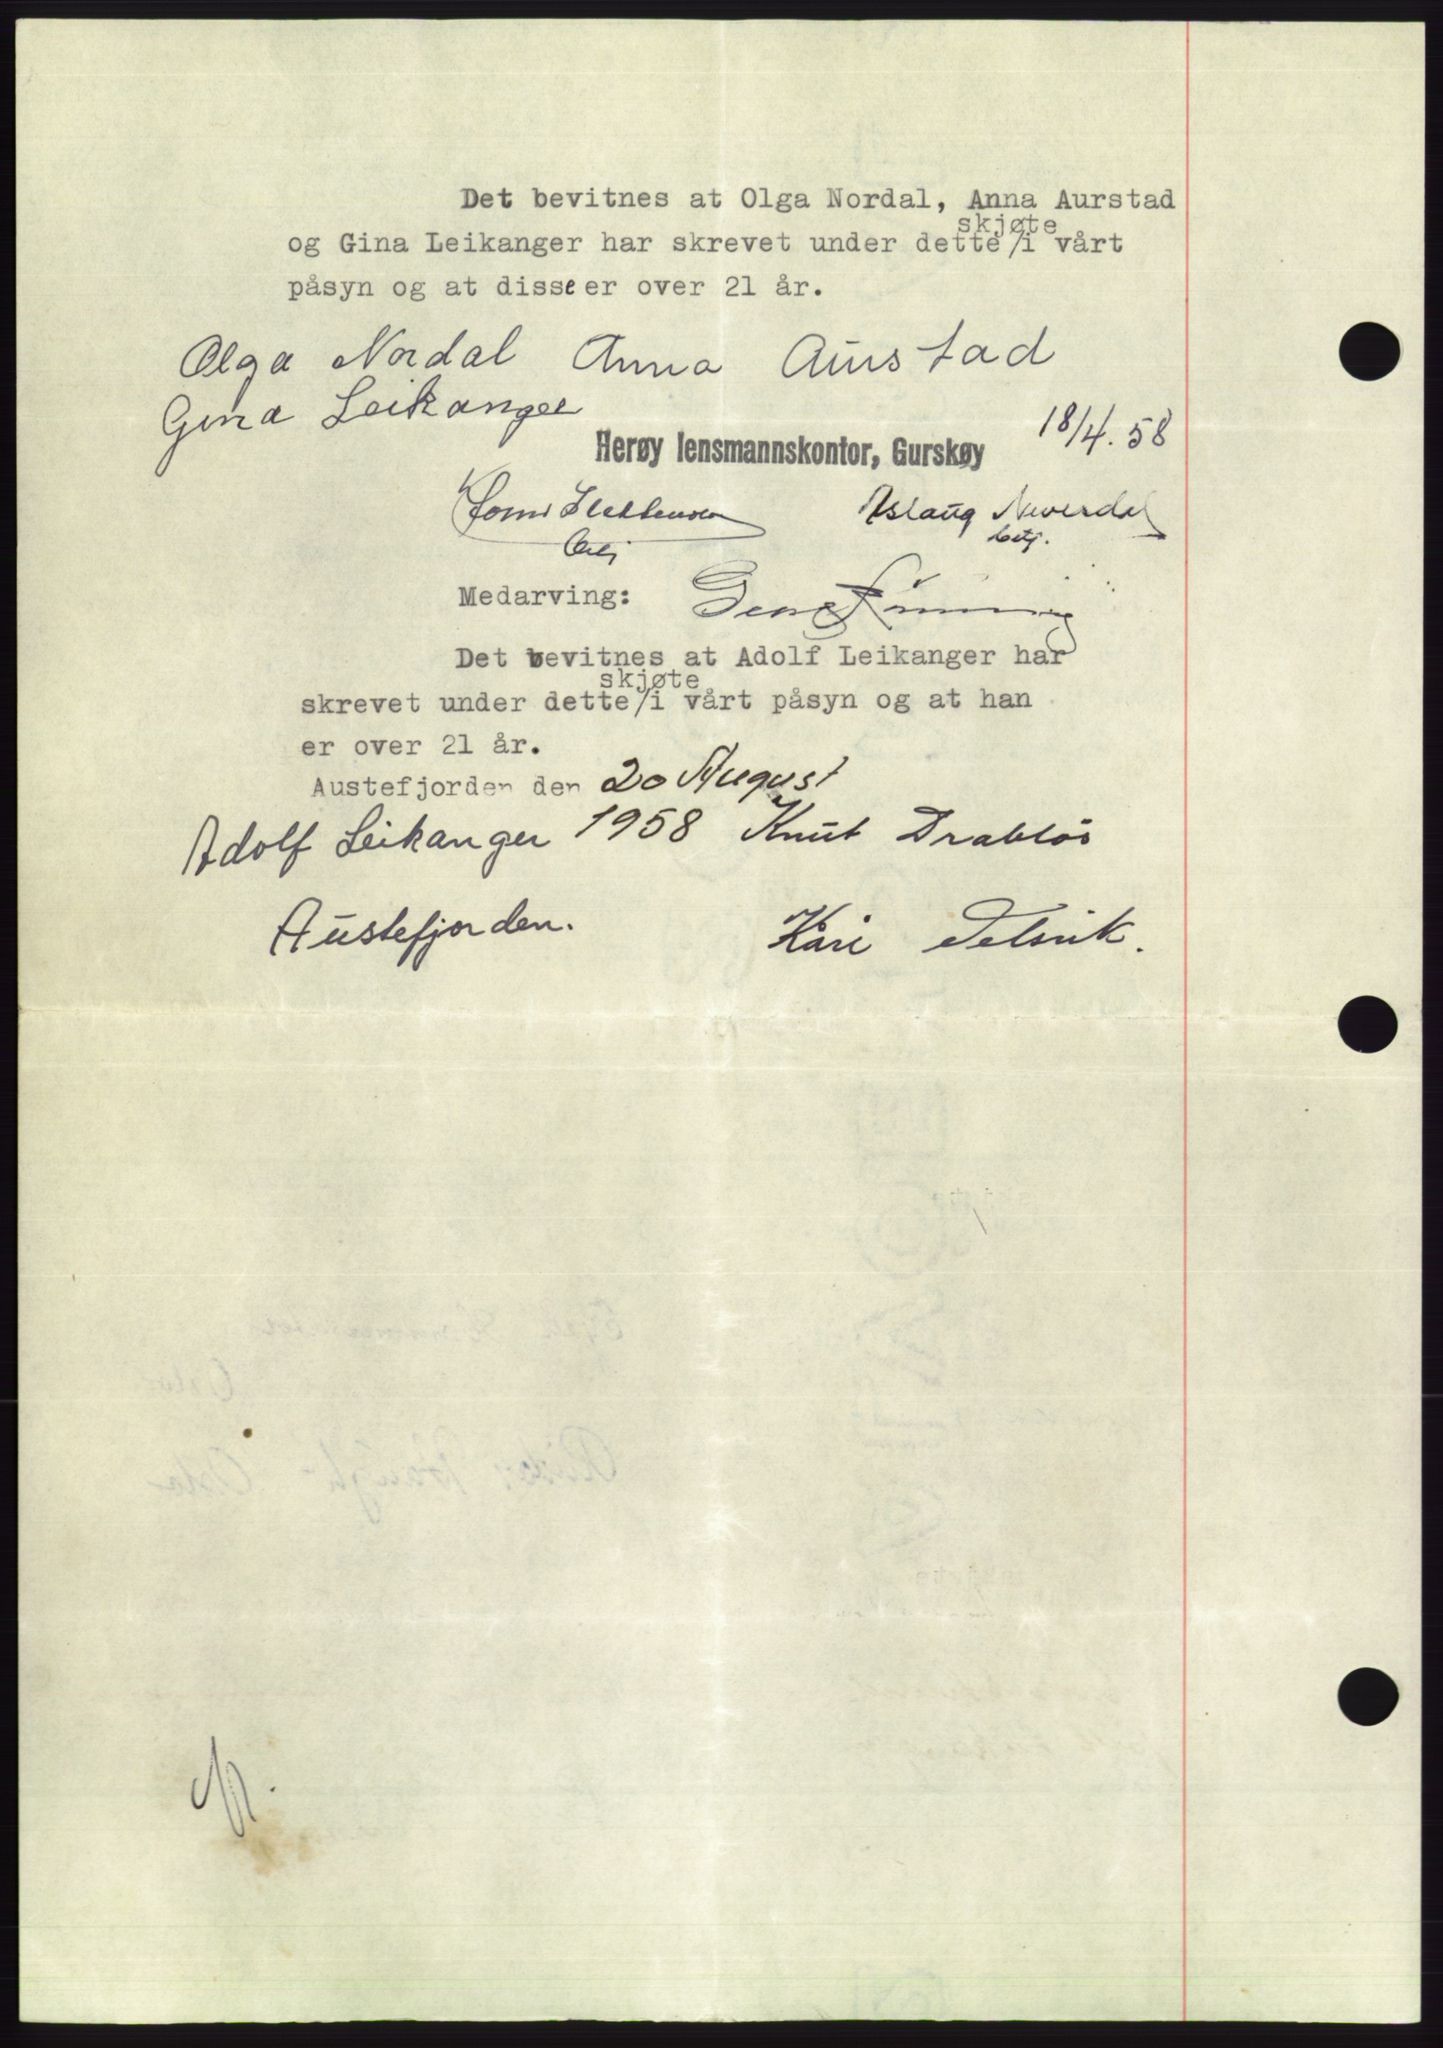 Det bevitnes at Olga Nordal, Anna Aurstad
skjøte
og Gina Leikanger har skrevet under dette/i vårt
påsyn og at disse er over 21 år.
Olga Nordal Anna Aurstad
Gina Leikanger
18/4. 58
Herøy lensmannskontor, Gurskøy
Aslaug Neverdal
betj.
Medarving:
Det bevitnes at Adolf Leikanger har
skjøte
skrevet under dette/i vårt påsyn og at han
er over 21 år.
Austefjorden den 20 August
Adolf Leikanger 1958 Knut Drabløs
Austefjorden. Kåre